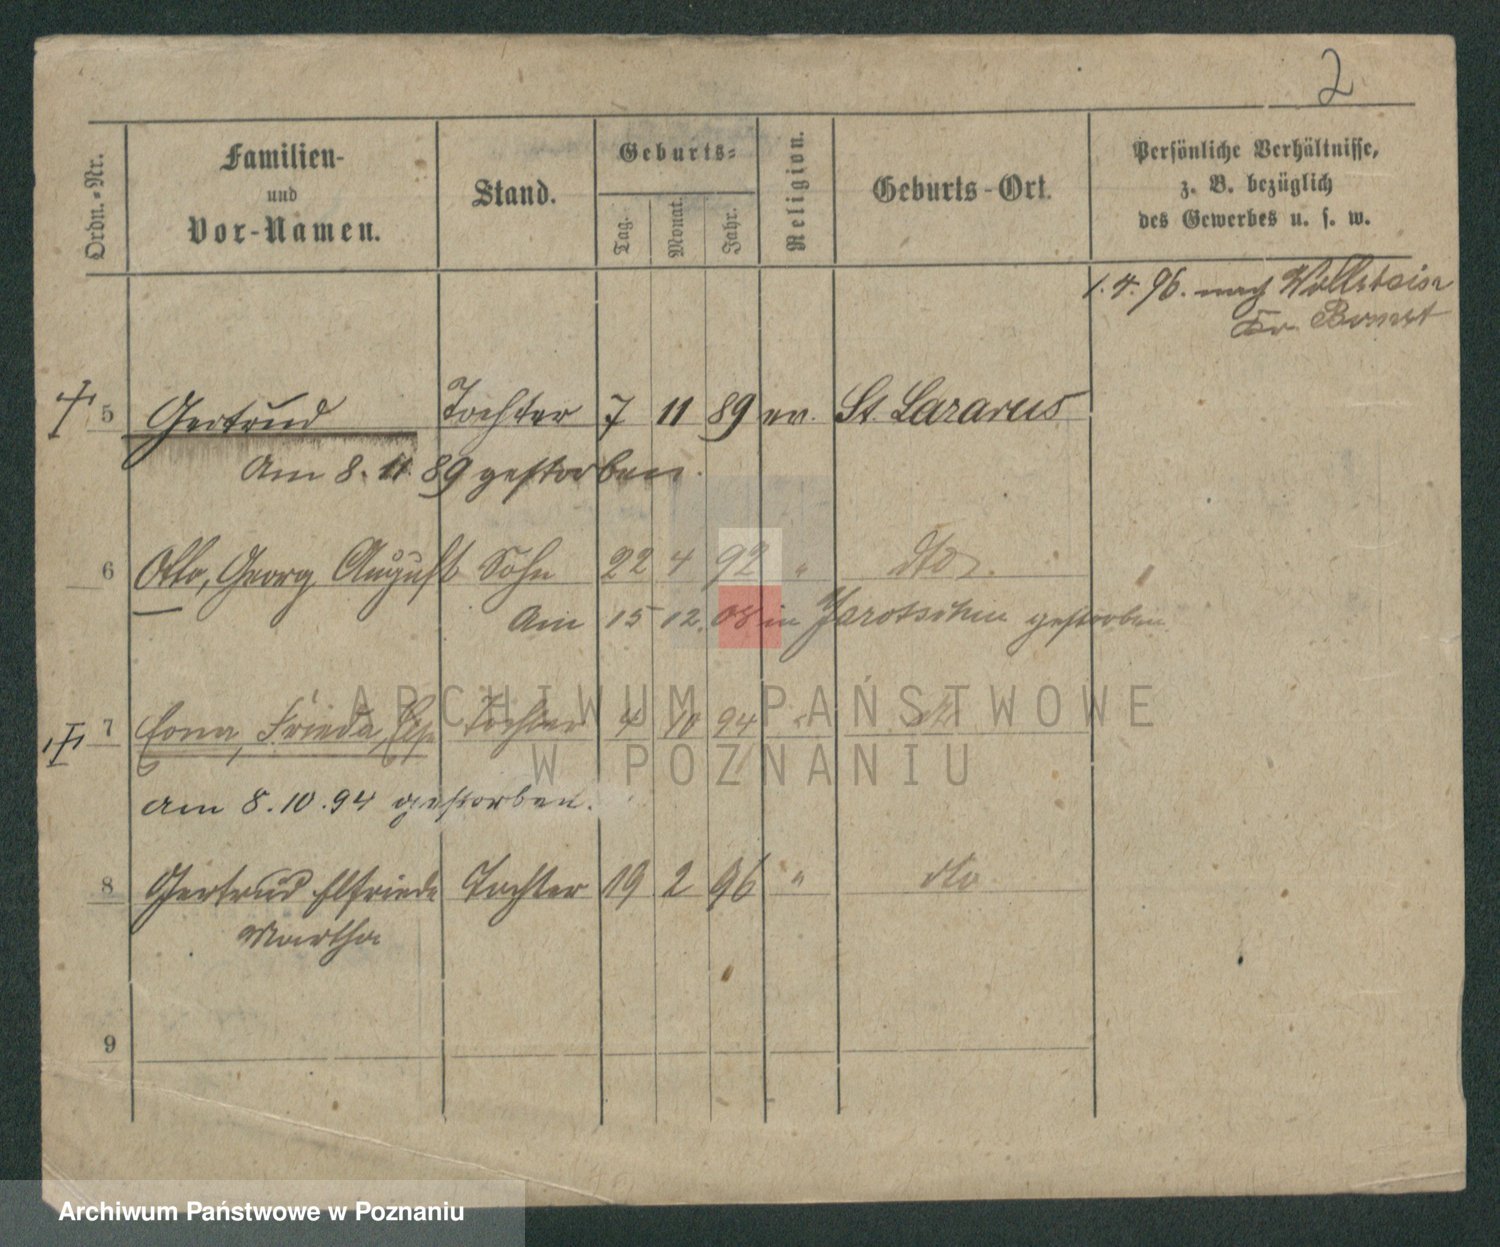 2
Ordn.-Nr.
Familien-
und
Vor-Namen.
Stand.
Geburts-
Tag.
Monat.
Jahr.
Religion.
Geburts-Ort.
Persönliche Verhältnisse,
z. B. bezüglich
des Gewerbes u. s. w.
1. 4. 96. nach Wollstein
Kr. Bomst
5 Gertrud Tochter 7 11 89 ev. St. Lazarus
Am 8. 11. 89 gestorben.
6 Otto, Georg August Sohn 22 4 92 " dto.
Am 15 12. 08 in Jarotschin gestorben
7 Erna, Frieda, Tochter 4 10 94 " dto
am 8. 10. 94 gestorben.
8 Gertrud Elfriede Tochter 19 2 96 " dto
Martha
9
ARCHIWUM PAŃSTWOWE
W POZNANIU
Archiwum Państwowe w Poznaniu